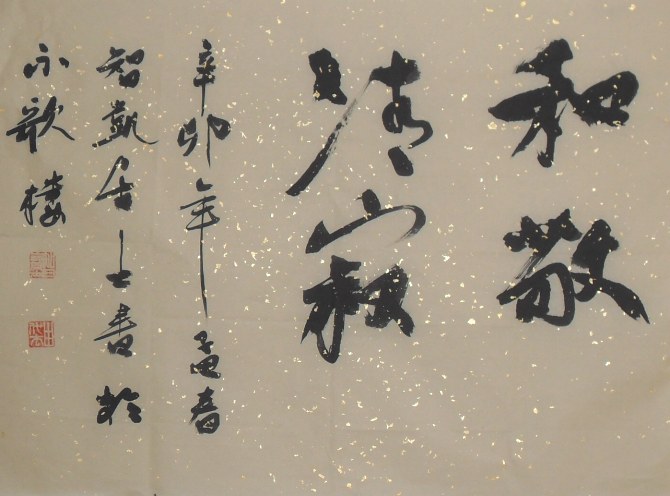 和敬
清寂
辛卯年孟春
智凱居士書於
不歌樓